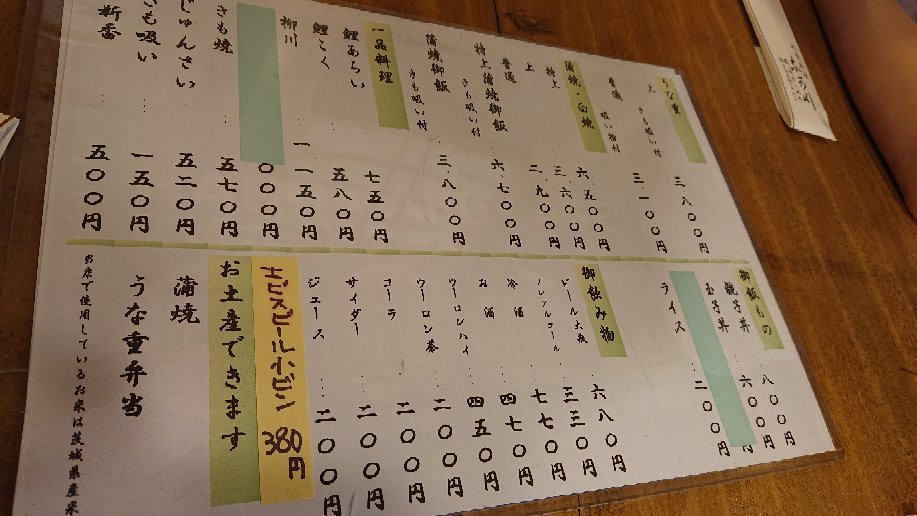 うな重
上 きも吸い付 … 三、八〇〇円
普通 吸い物付 … 三、一〇〇円
蒲焼・白焼
特上 … 六、五〇〇円
上 … 三、六〇〇円
普通 … 二、九〇〇円
特上蒲焼御飯 きも吸い付 … 六、七〇〇円
蒲焼御飯 きも吸い付 … 三、八〇〇円
一品料理
鯉あらい … 七五〇円
鯉こく … 五八〇円
柳川 … 一、一五〇円
〇〇〇円
きも焼 … 五七〇円
じゅんさい … 五二〇円
きも吸い … 一五〇円
新香 … 五〇〇円
御飯もの
親子丼 … 八〇〇円
玉子丼 … 六〇〇円
ライス … 二〇〇円
御飲み物
ビール大瓶 … 六八〇円
ノンアルコール … 三三〇円
冷酒 … 七七〇円
お酒 … 四七〇円
ウーロンハイ … 四五〇円
ウーロン茶 … 二〇〇円
コーラ … 二〇〇円
サイダー … 二〇〇円
ジュース … 二〇〇円
エビスビール小ビン 380円
お土産できます
蒲焼
うな重弁当
当店で使用しているお米は茨城県産米